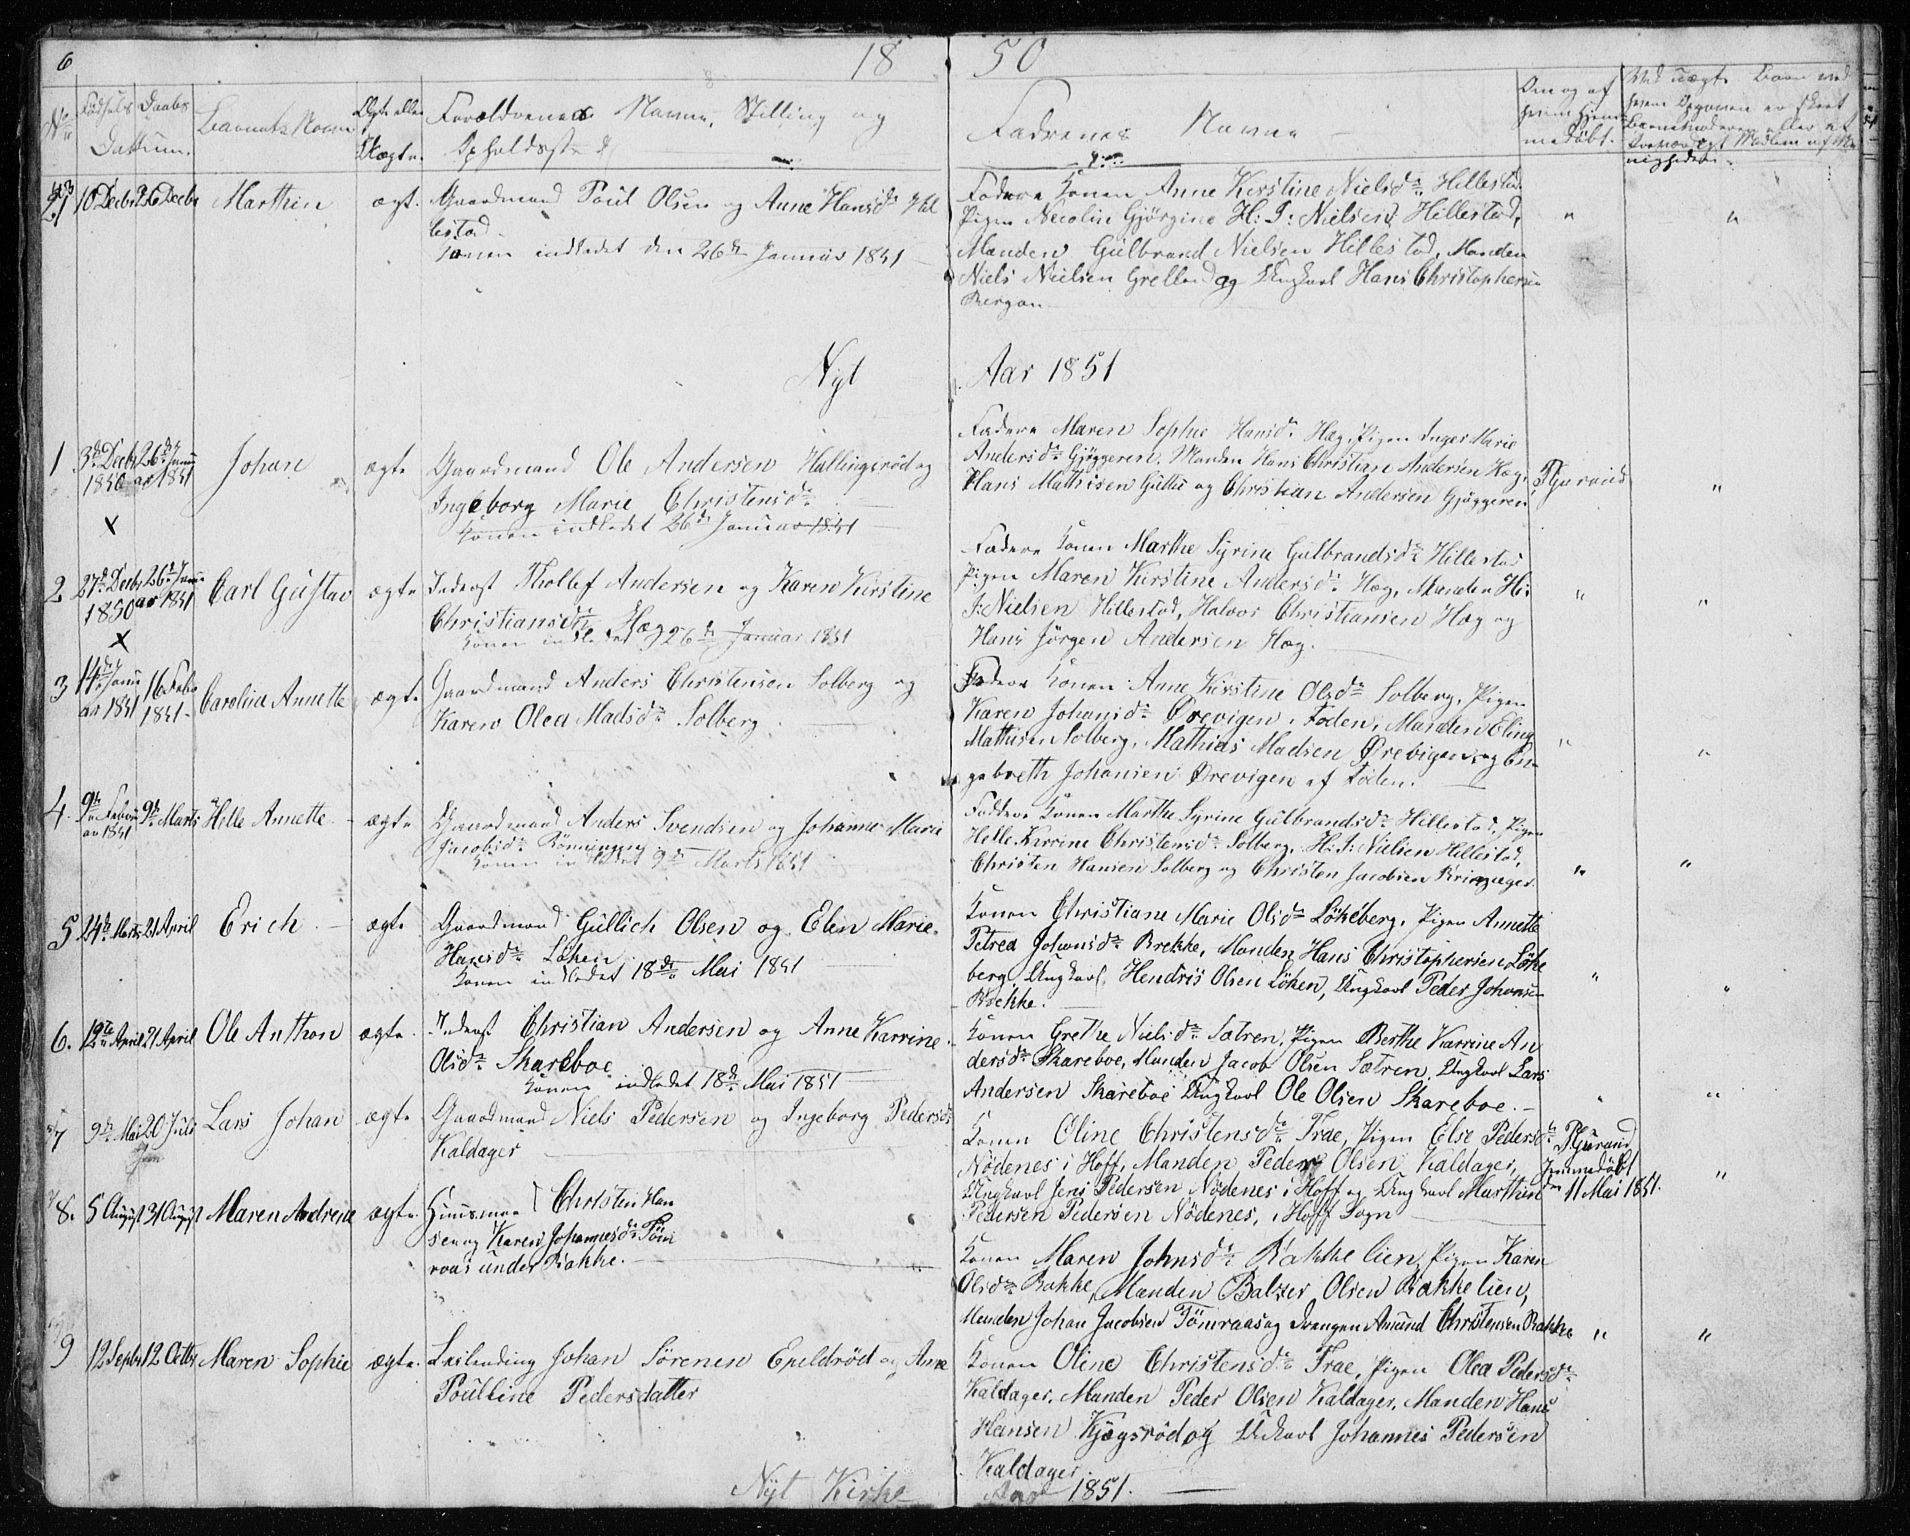 6
18 50
No
Fødsels Daabs
Dattum.
Barnets Navn
Ægte eller
Uægte.
Forældrenes Navne, Stilling og
Opholdsted
Fadrenes Navne
Om og af
hvem hjem-
medøbt.
21 10 Decbr 26 Decbr Marthin ægt. Gaardmand Poul Olsen og Anne Hansdr Hil
lestad.
Konen indledet den 26de Januar 1851
Fadere Konen Anne Kirstine Nielsdr Hillestad
Pigen Necolin Gjørgine H: I: Nielsen Hillestad,
Manden Gulbrand Nielsen Hillestad, Manden
Niels Nielsen Grelland og Ungkarl Hans Christophersen
Bergan
Nyt Aar 1851
1 3de Decbr 26de Janu
1850 ar 1851 Johan ægte Gaardmand Ole Andersen Hallingsrød og
Ingeborg Marie Christensdr
Konen indledet 26de Januar 1851
Fadere Maren Sophie Hansdr Hæg, Pigen Inger Marie
Andersdr Gjøggeren, Manden Hans Christian Andersen Hæg,
Hans Mathisen Gutu og Christian Andersen Gjøggeren
x
2 27de Decbr 26de Janu
1850 ar 1851 Carl Gustav ægte Inderst Thollef Andersen og Karen Kirstine
Christiansdr Hæg
Konen indledet 26de Januar 1851
Fadere Konen Marthe Syrine Gulbrandsdr Hillestad
Pigen Maren Kirstine Andersdr Hæg, Manden H:
I: Nielsen Hillestad, Halvor Christiansen Hæg og
Hans Jørgen Andersen Hæg.
x
3 14de Janu 16 Febr
ar 1851 1851 Caroline Annette ægte Gaardmand Anders Christensen Solberg og
Karen Olea Madsdr Solberg
Fadere Konen Anne Kirstine Olsdr Solberg, Pigen
Karen Johansdr Ørevigen i Foden, Manden Eling
Mathisen Solberg, Mathias Madsen Ørevigen og En-
gebreth Johansen Ørevigen af Foden.
4. 9de Febru 9de Marts
ar 1851 Helle Annette ægte Gaardmand Anders Svendsen og Johanne Marie
Jacobsdr Rønningen
Konen indledet 9de Marts 1851
Faddere Konen Marthe Syrine Gulbrandsdr Hillestad, Pigen
Helle Karrine Christensdr Solberg, H: I: Nielsen Hillestad,
Christen Hansen Solberg og Christen Jacobsen Bringager
5 24de Marts 21 April Erich ægte Gaardmand Gullich Olsen og Elen Marie
Hansdr Løken
Konen indledet 18de Mai 1851
Konen Christiane Marie Olsdr Løkeberg, Pigen Annette
Petrea Johansdr Brekke, Manden Hans Christophersen Løke
berg, Ungkarl Hendris Olsen Løken, Ungkarl Peder Johansen
Brekke.
6. 12te April 21 April Ole Anthon ægte Inderst Christian Andersen og Anne Karrine
Olsdr Skareboe
Konen indledet 18de Mai 1851
Konen Grethe Nielsdr Sætren, Pigen Berthe Karrine An
dersdr Skareboe, Manden Jacob Olsen Sætren, Ungkarl Lars
Andersen Skareboe Ungkarl Ole Olsen Skareboe.
7 9de Mai 20 Juli Lars Johan ægte Gaardmand Niels Pedersen og Ingeborg Pedersdr
Kaldager
Konen Oline Christensdr Trae, Pigen Else Pedersdr
Nødenes i Hoff, Manden Peder Olsen Kaldager,
Ungkarl Jens Pedersen Nødenes i Hoff og Ungkarl Marthin
Pedersen Pedersen Nødenes, i Hoff Sogn
hjemmedøbt
den 11 Mai 1851.
8. 5 August 31 August Maren Andrene ægte Huusmand Christen Han
sen og Karen Johannesdr Tøm
raas under Bakke.
Konen Maren Johnsdr Bakkelien, Pigen Karen
Olsdr Bakke, Manden Balzer Olsen Bakkelien,
Manden Johan Jacobsen Tømraas og Drengen Amund Christensen Bakke
9 12 Septbr 12 Octbr Maren Sophie ægte Leilending Johan Sørensen Epeldrød og Anne
Poulline Pedersdatter
Konen Oline Christensdr Trae, Pigen Olea Pedersdr
Kaldager, Manden Peder Olsen Kaldager, Manden Hans
Hansen Kjægsrød og Ungkarl Johannes Pedersen
Kaldager.
Nyt Kirke Aar 1851.